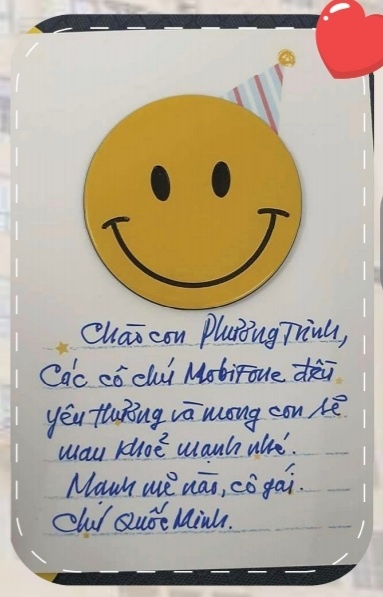 Chào con Phương Trinh,
Các cô chú MobiFone đều
yêu thương và mong con sẽ
mau khoẻ mạnh nhé.
Mạnh mẽ nào, cô gái.
Chú Quốc Minh.